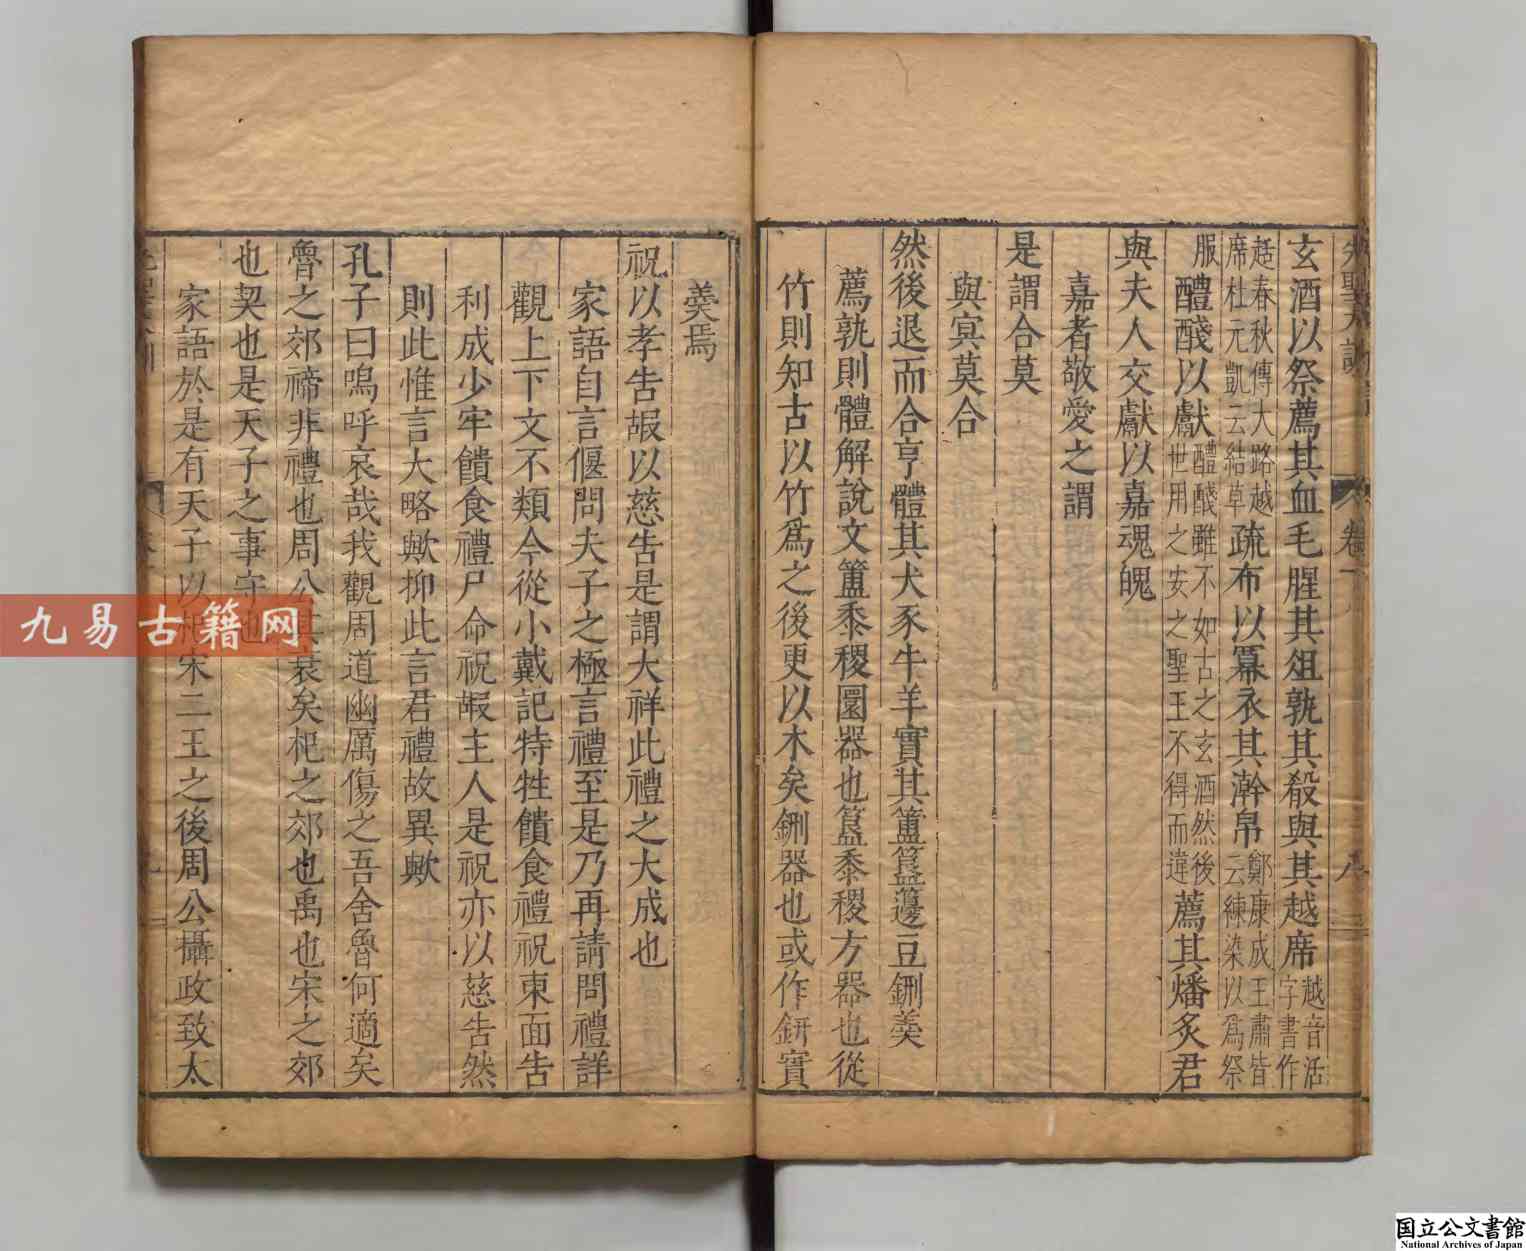 玄酒以祭薦其血毛腥其俎孰其殽與其越席越音活字書作
趏春秋傳大路越席杜元凱云結草疏布以冪衣其澣帛鄭康成王肅皆云練染以爲祭
服醴醆以獻醴醆雖不如古之玄酒然後世用之安之聖王不得而違薦其燔炙君
與夫人交獻以嘉魂魄
嘉者敬愛之謂
是謂合莫
與㝠莫合
然後退而合亨體其犬豕牛羊實其簠簋籩豆鉶羹
薦孰則體解說文簠黍稷圜器也簋黍稷方器也從
竹則知古以竹爲之後更以木矣鉶器也或作鈃實
羹焉
祝以孝告嘏以慈告是謂大祥此禮之大成也
家語自言偃問夫子之極言禮至是乃再請問禮詳
觀上下文不類今從小戴記特牲饋食禮祝東面告
利成少牢饋食禮尸命祝嘏主人是祝亦以慈告然
則此惟言大略歟抑此言君禮故異歟
孔子曰嗚呼哀哉我觀周道幽厲傷之吾舍魯何適矣
魯之郊禘非禮也周公其衰矣杞之郊也禹也宋之郊
也契也是天子之事守也
家語於是有天子以杞宋二王之後周公攝政致太
卷下
九易古籍网
国立公文書館
National Archives of Japan